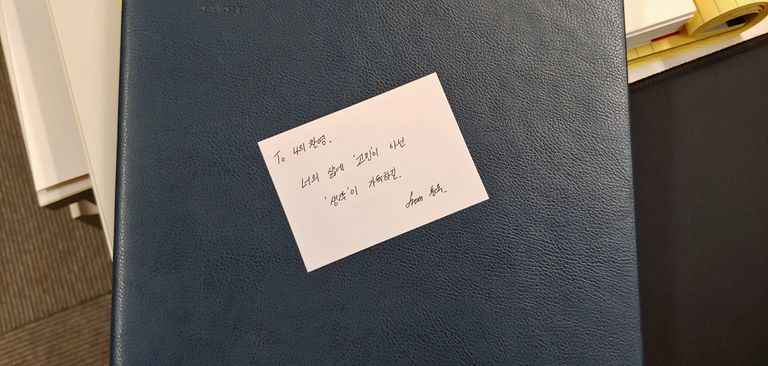 To 나의 찬영.
너의 삶에 '고민'이 아닌
'생각'이 가득하길.
from 동욱.